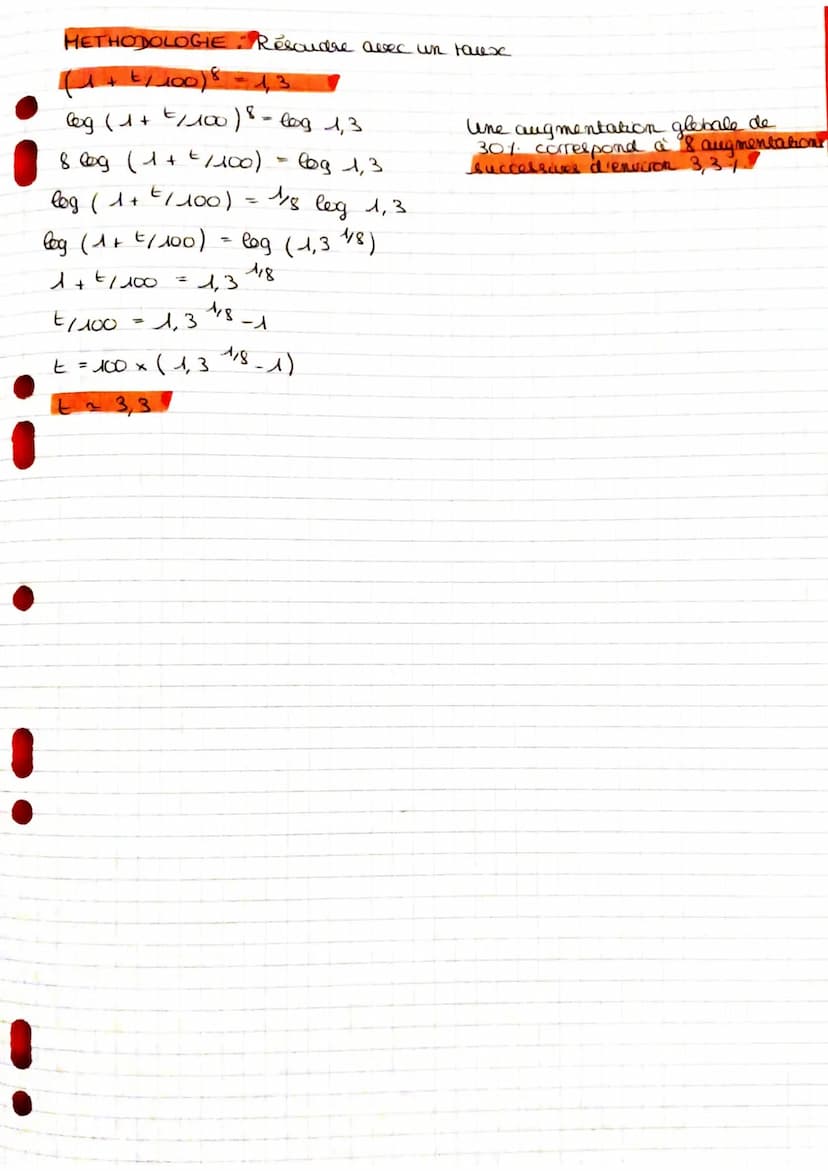 METHODOLOGIE : Résoudre avec un taux
(1 + t/100)⁸ = 1,3
log (1 + t/100)⁸ = log 1,3
8 log (1 + t/100) = log 1,3
log (1 + t/100) = 1/8 log 1,3
log (1 + t/100) = log (1,3^1/8)
1 + t/100 = 1,3^1/8
t/100 = 1,3^1/8 - 1
t = 100 × (1,3^1/8 - 1)
t ≈ 3,3
Une augmentation globale de
30% correspond à 8 augmentations
successives d'environ 3,3%.